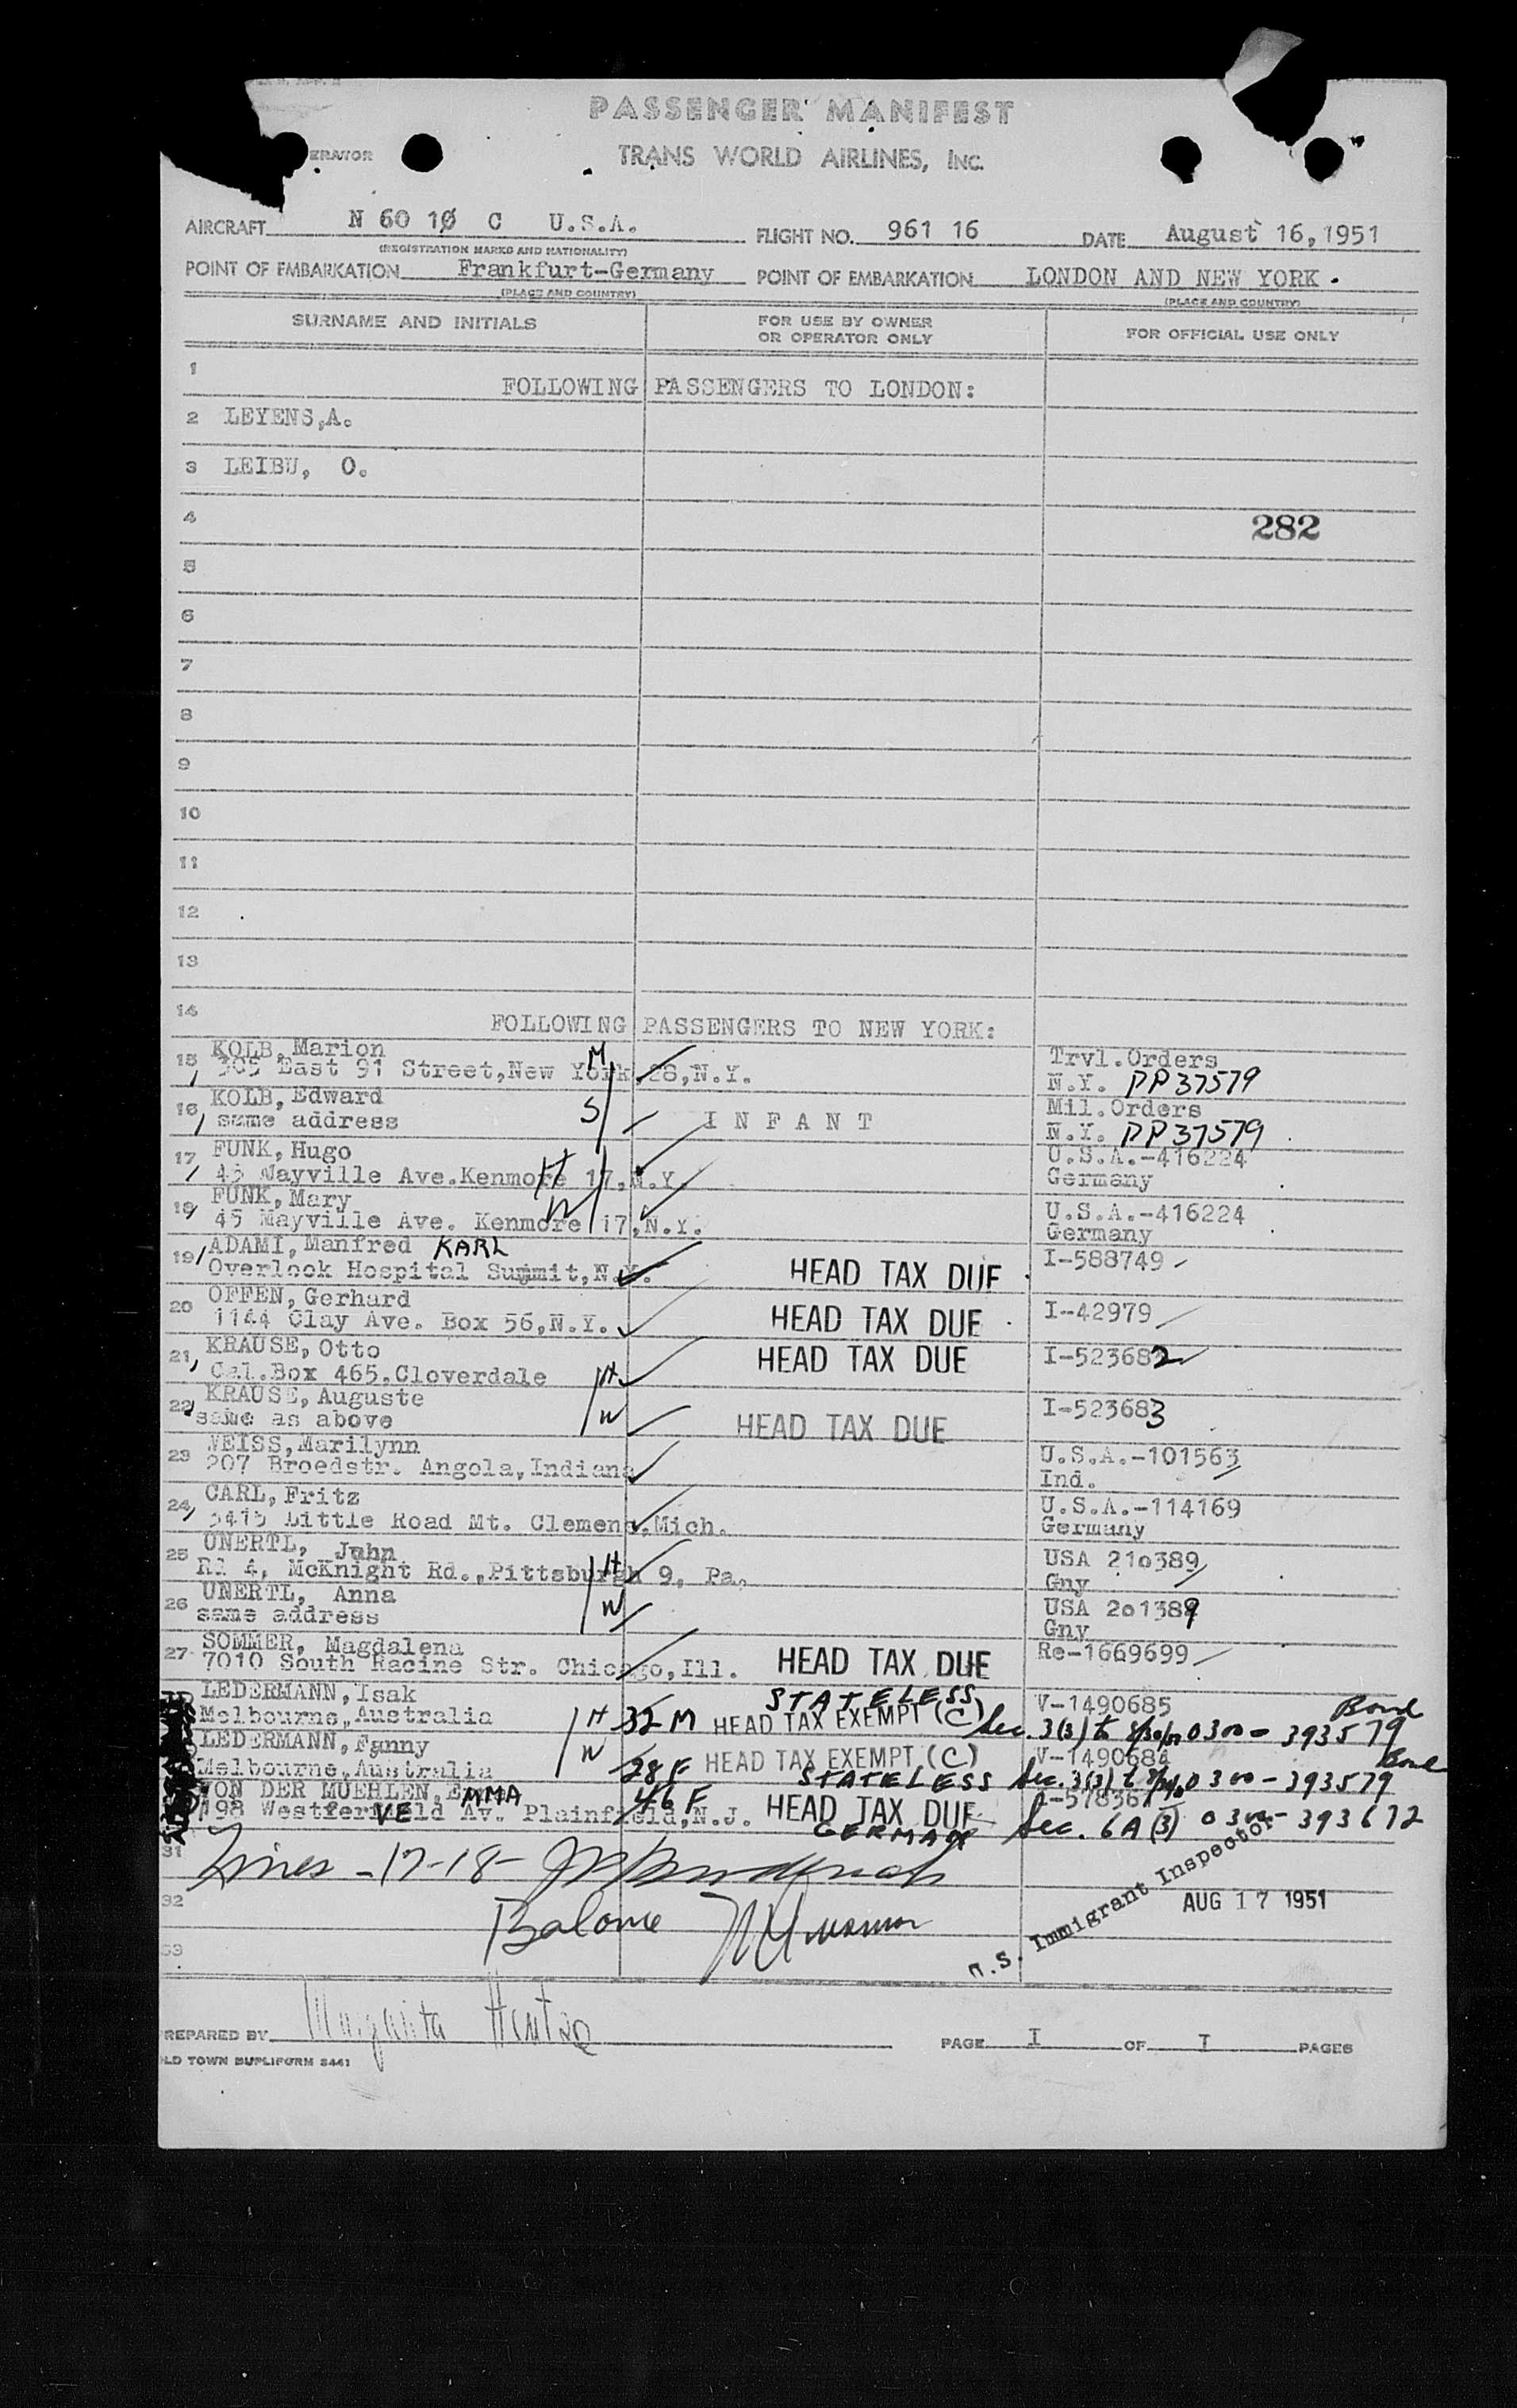 PASSENGER MANIFEST
ERATOR
TRANS WORLD AIRLINES, INC.
AIRCRAFT N 60 10 C U.S.A. FLIGHT NO. 961 16 DATE August 16,1951
(REGISTRATION MARKS AND NATIONALITY)
POINT OF EMBARKATION Frankfurt-Germany POINT OF EMBARKATION LONDON AND NEW YORK.
(PLACE AND COUNTRY) (PLACE AND COUNTRY)
SURNAME AND INITIALS FOR USE BY OWNER OR OPERATOR ONLY FOR OFFICIAL USE ONLY
1 FOLLOWING PASSENGERS TO LONDON:
2 LEYENS,A.
3 LEIBU, O.
4 282
5
6
7
8
9
10
11
12
13
14 FOLLOWING PASSENGERS TO NEW YORK:
15 KOLB,Marion M Trvl.Orders
305 East 91 Street,New York 28,N.Y. N.Y. PP 37579
16 KOLB,Edward Mil.Orders
same address S INFANT N.Y. PP 37579
17 FUNK,Hugo U.S.A.-416224
45 Mayville Ave.Kenmore 17,N.Y. H Germany
18 FUNK,Mary W U.S.A.-416224
45 Mayville Ave. Kenmore 17,N.Y. Germany
19 ADAMI,Manfred KARL I-588749
Overlook Hospital Summit,N.Y. HEAD TAX DUE
20 OFFEN,Gerhard I-42979
1144 Clay Ave. Box 56,N.Y. HEAD TAX DUE
21 KRAUSE,Otto HEAD TAX DUE I-523682
Cal.Box 465,Cloverdale H
22 KRAUSE,Auguste I-523683
same as above W HEAD TAX DUE
23 WEISS,Marilynn U.S.A.-101563
207 Broedstr. Angola,Indiana Ind.
24 CARL,Fritz U.S.A.-114169
5415 Little Road Mt. Clemens,Mich. Germany
25 UNERTL, John USA 210389
Rd 4, McKnight Rd.,Pittsburgh 9, Pa. H Gny
26 UNERTL, Anna USA 201389
same address W Gny
27 SOMMER, Magdalena Re-1669699
7010 South Racine Str. Chicago,Ill. HEAD TAX DUE
LEDERMANN,Isak STATELESS V-1490685 Bond
Melbourne,Australia H 32 M HEAD TAX EXEMPT (C) Sec. 3(3) 0300-393579
LEDERMANN,Fanny W HEAD TAX EXEMPT (C) V-1490684 Bond
Melbourne,Australia 28 F STATELESS Sec. 3(3) 0300-393579
VON DER MUEHLEN, EMMA 46 F
Av. Plainfield,N.J. HEAD TAX DUE GERMAN Sec. 6A(3) 0300-393672
31 Lines-17-18-
32 Balance AUG 17 1951
33 U.S. Immigrant Inspector
PREPARED BY Margarita Hentze PAGE I OF I PAGES
OLD TOWN DUPLIFORM 8441